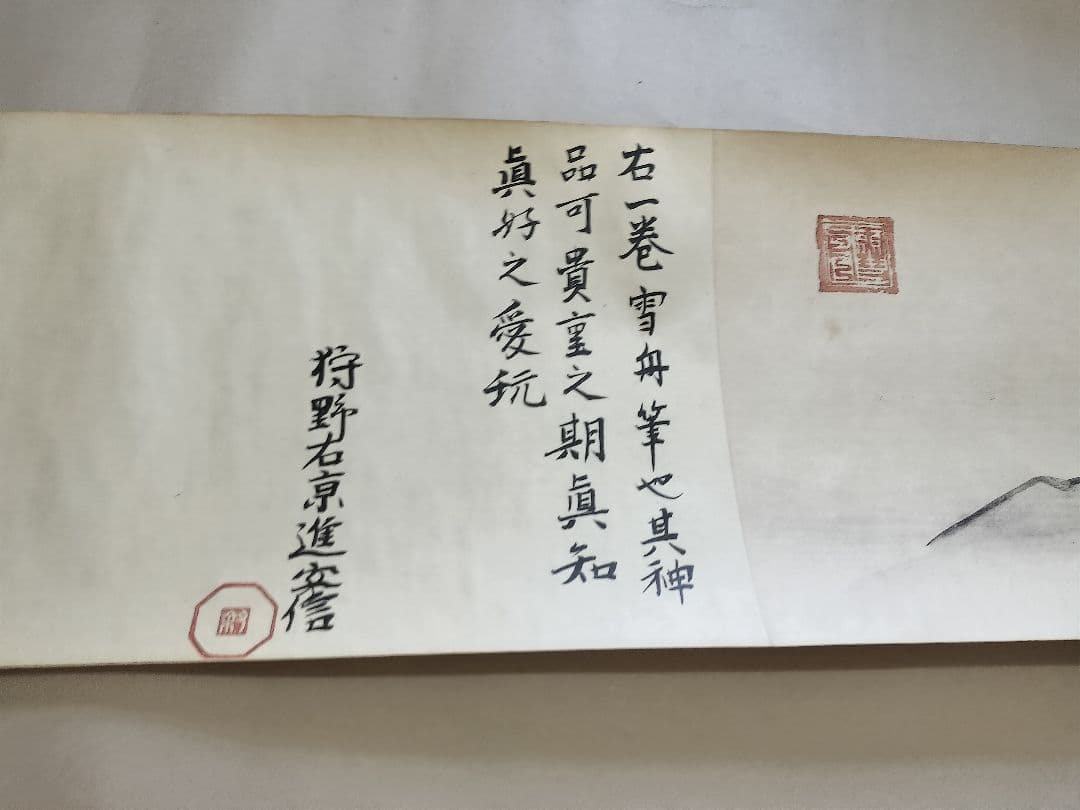 右一巻雪舟筆也其神
品可貴重之期眞知
眞好之愛玩
狩野右京進安信